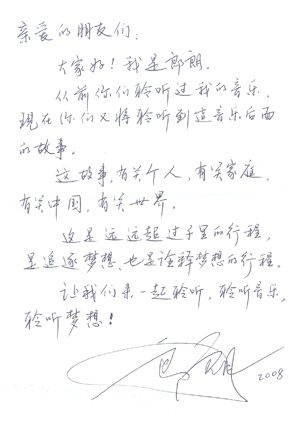 亲爱的朋友们:
大家好！我是郎朗。
从前你们聆听过我的音乐，
现在你们又将聆听到这音乐后面
的故事。
这故事，有关个人，有关家庭，
有关中国，有关世界。
这是远远超过千里的行程，
是追逐梦想、也是诠释梦想的行程。
让我们来一起聆听，聆听音乐，
聆听梦想！
郎朗 2008